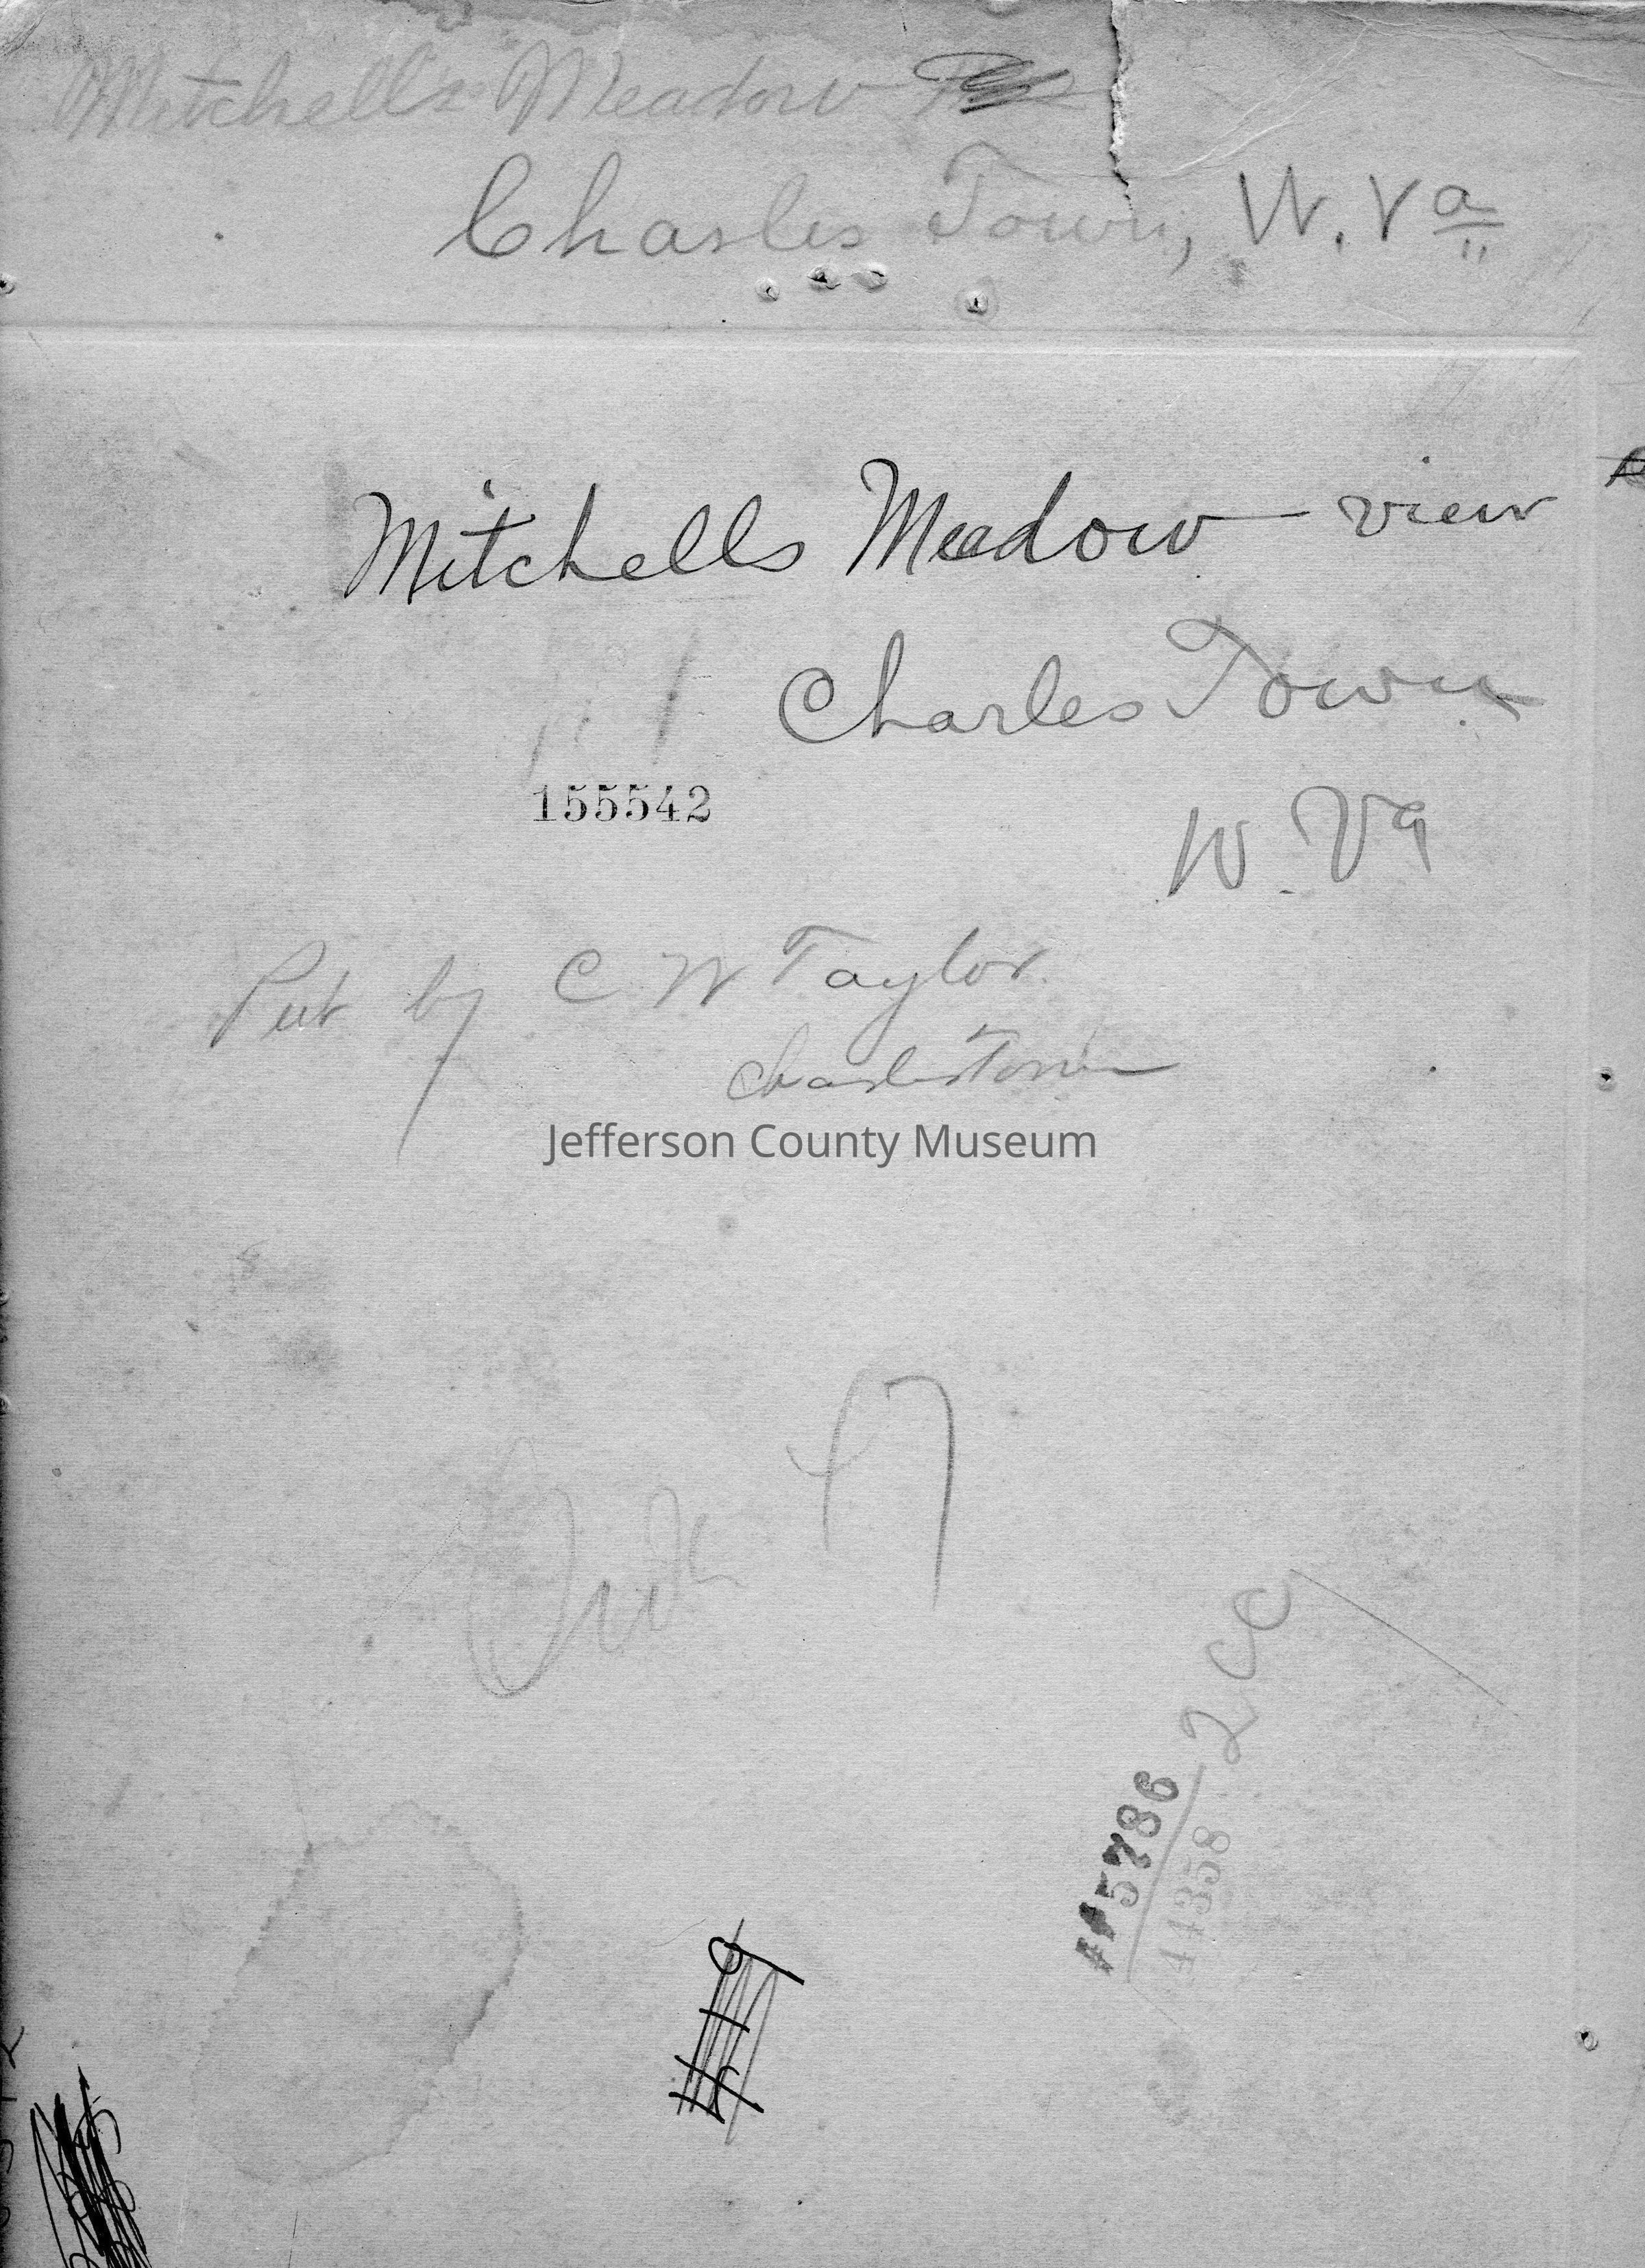 Mitchell's Meadow
Charles Town, W. Va
Mitchells Meadow view
Charles Town
W. Va
155542
Pub by C W Taylor
Charles Town
Jefferson County Museum
2cc
#5786
44358